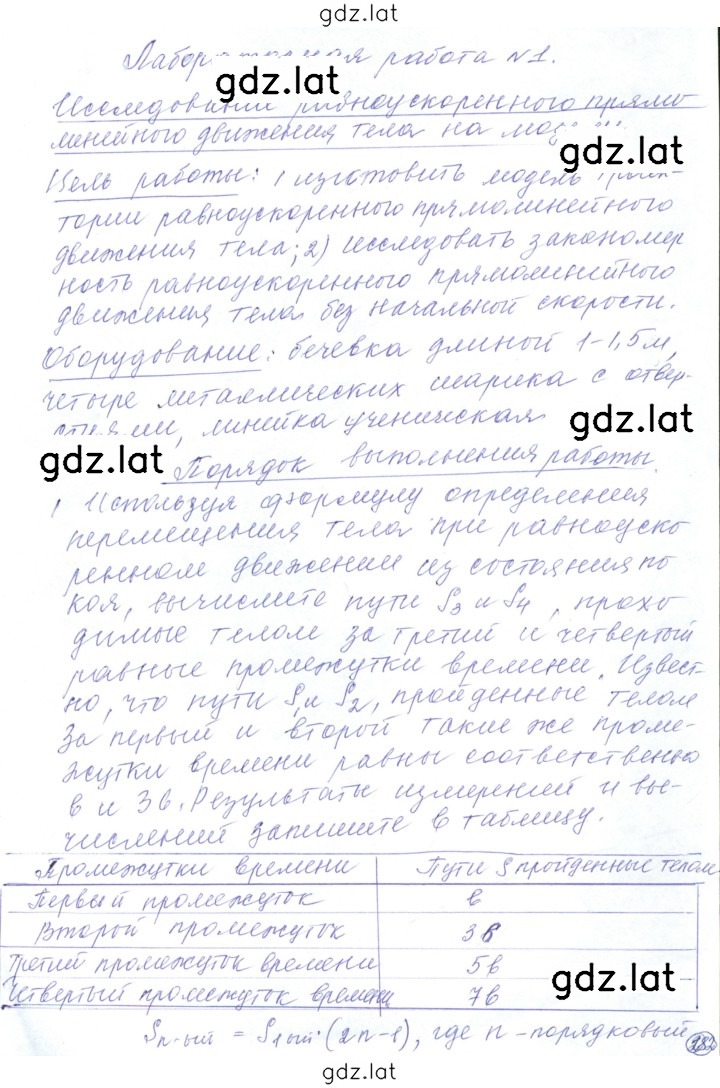 gdz.lat
Лабор работа №1.
gdz.lat
Исследование равноускоренного прямо
линейного движения тела на
gdz.lat
Цель работы: 1 изготовить модель
тории равноускоренного прямолинейного
движения тела; 2) исследовать закономер
ность равноускоренного прямолинейного
движения тела без начальной скорости.
Оборудование: бечевка длиной 1-1,5м,
четыре металлических шарика с отвер-
линейка ученическая
gdz.lat
gdz.lat
Порядок выполнения работы.
1 Используя формулу определения
перемещения тела при равноуско
ренном движении из состояния по
коя, вычислите пути S3 и S4, прохо
димые телом за третий и четвертый
равные промежутки времени. Извест-
но, что пути S1 и S2, пройденные телом
за первый и второй такие же проме-
жутки времени равны соответственно
в и 3в. Результаты измерений и вы-
числений запишите в таблицу.
Промежутки времени Пути S пройденные телом
Первый промежуток в
Второй промежуток 3в
Третий промежуток времени 5в
Четвертый промежуток времени 7в
gdz.lat
Sn-ый = S1ый·(2n-1), где n-порядковый
282
gdz.lat